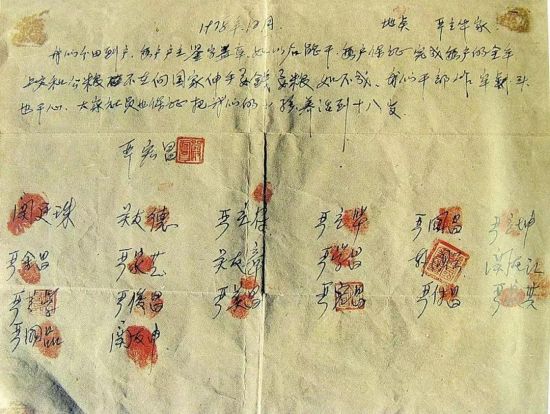 1978年12月 地点 严立华家
我们分田到户，每户户主签字盖章，如以后能干，每户保证完成每户的全年
上交和公粮 不在向国家伸手要钱要粮，如不成，我们干部作牢刹头
也干心，大家社员也保证把我们的小孩养活到十八岁
严宏昌
关廷珠 关友德 严立符 严立华 严国昌 严立坤
严金昌 严家芝 关友章 严学昌 韩国云 关友江
严立学 严俊昌 严美昌 严宏昌 严付昌
严国品 关友申